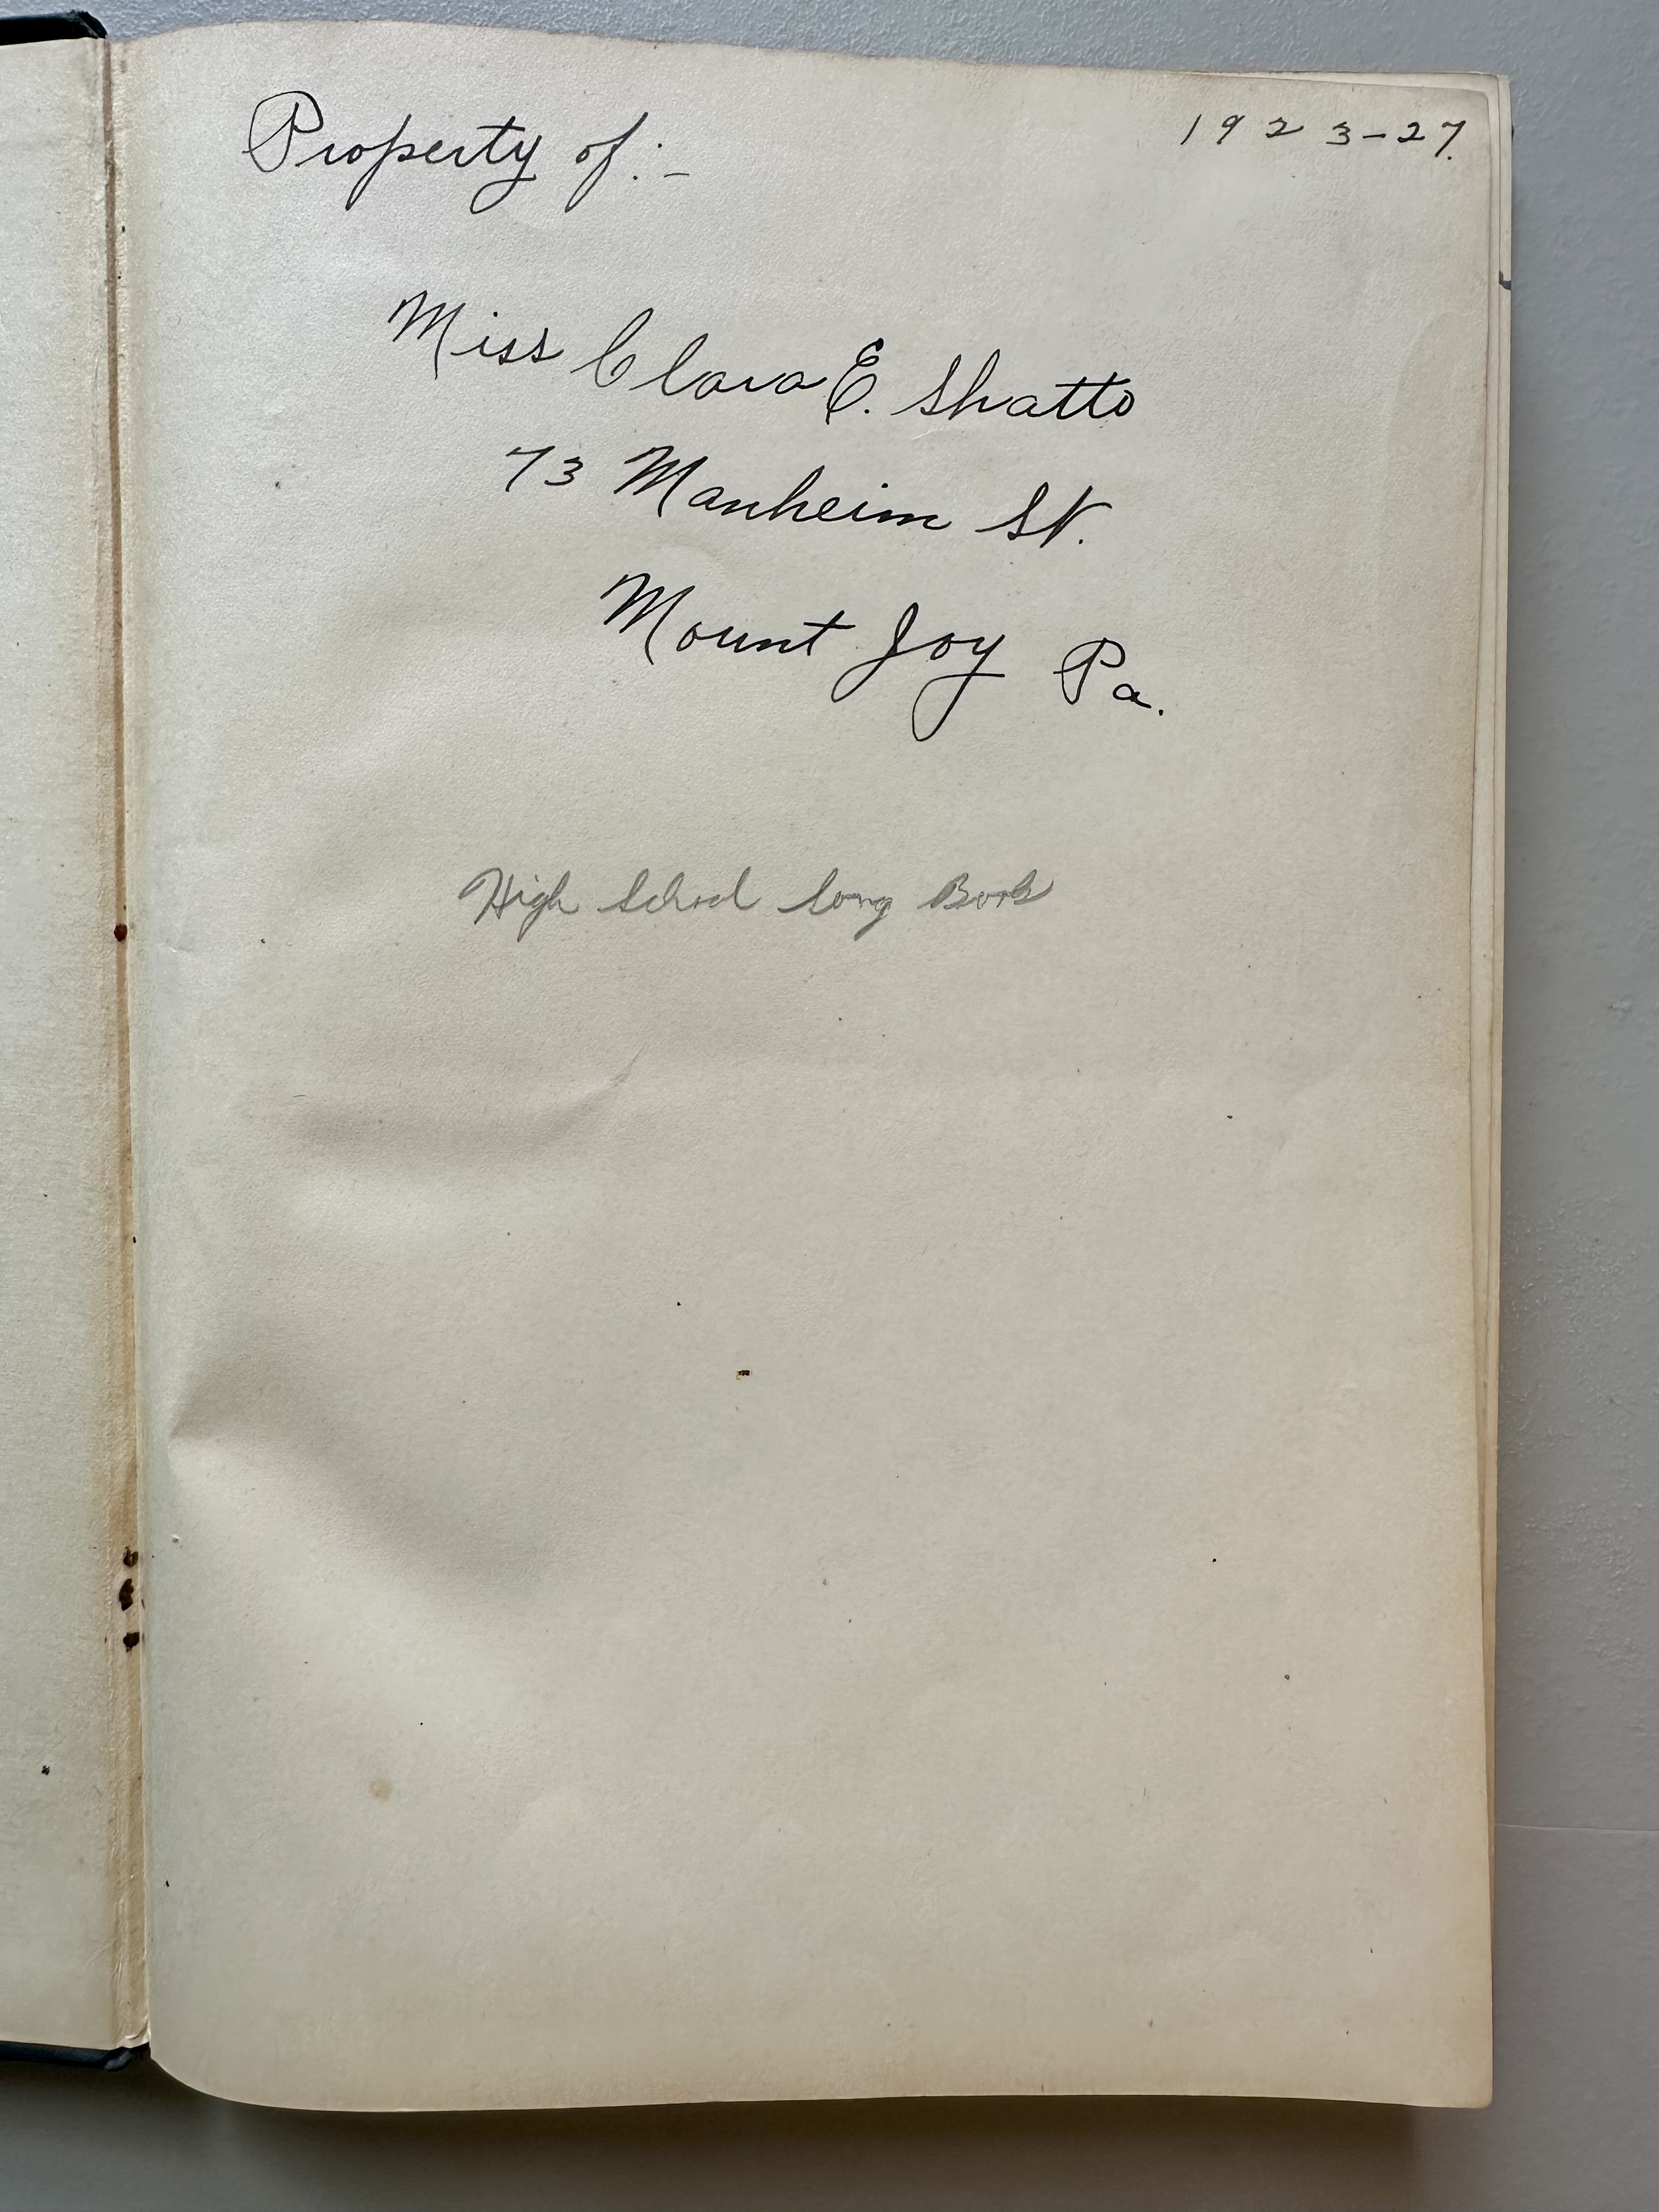 1923-27.
Property of:-
Miss Clara E. Shatto
73 Manheim St.
Mount Joy Pa.
High School Song Book